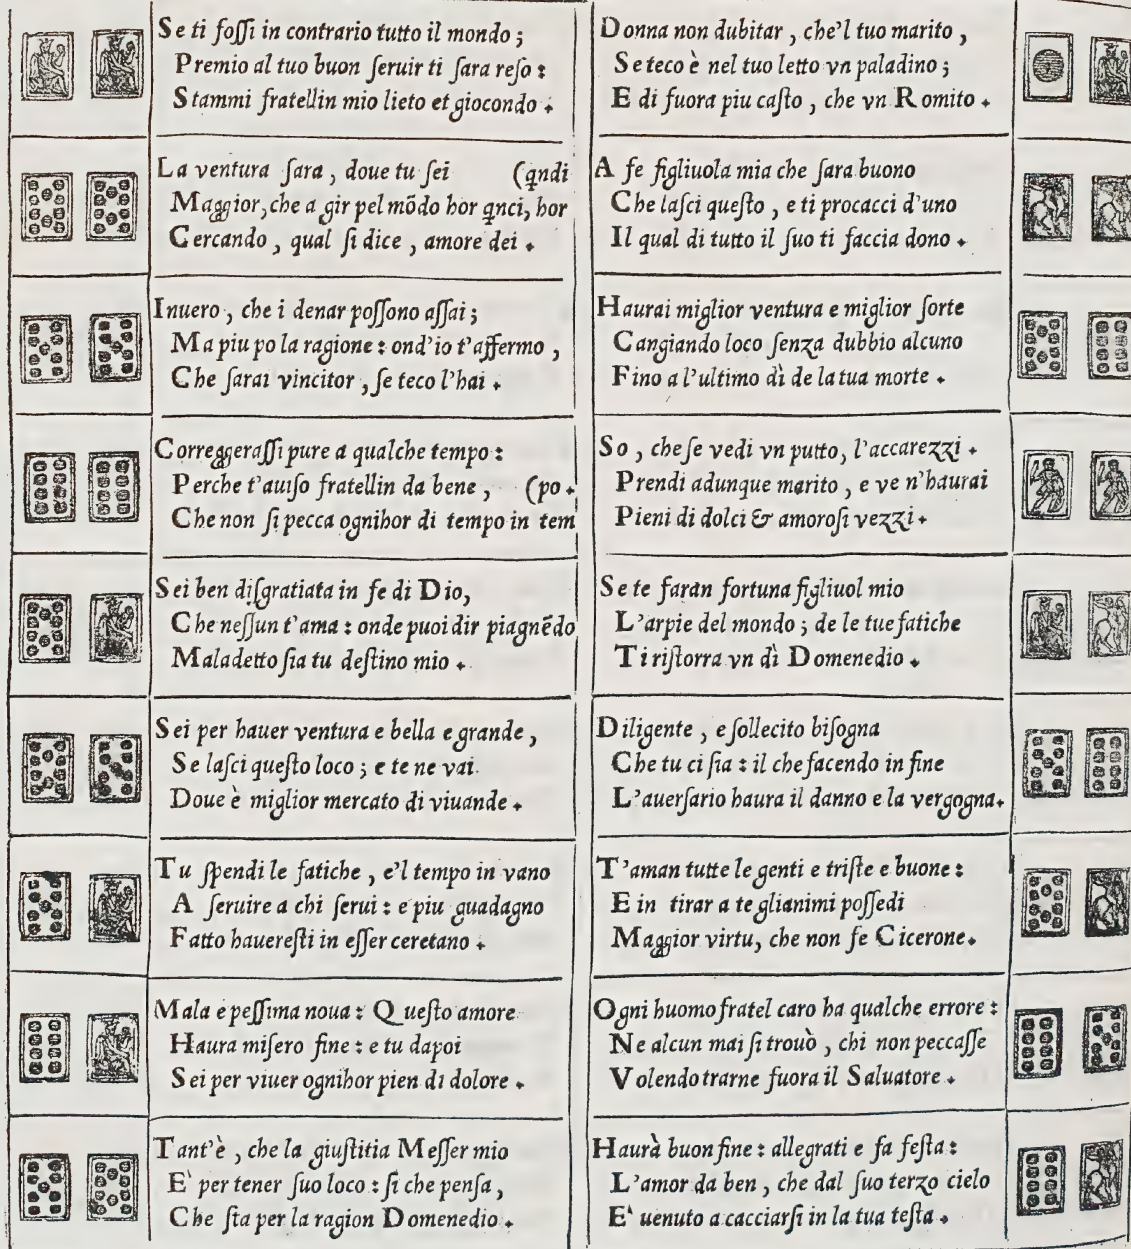 Se ti foſſi in contrario tutto il mondo ;
Premio al tuo buon ſeruir ti ſara reſo :
Stammi fratellin mio lieto et giocondo .
La ventura ſara , doue tu ſei (qndi
Maggior, che a gir pel mōdo hor qnci, hor
Cercando , qual ſi dice , amore dei .
Inuero , che i denar poſſono aſſai ;
Ma piu po la ragione : ond'io t'affermo ,
Che ſarai vincitor , ſe teco l'hai .
Correggeraſſi pure a qualche tempo :
Perche t'auiſo fratellin da bene , (po .
Che non ſi pecca ognihor di tempo in tem
Sei ben diſgratiata in fe di Dio,
Che neſſun t'ama : onde puoi dir piagnēdo
Maladetto ſia tu deſtino mio .
Sei per hauer ventura e bella e grande ,
Se laſci queſto loco ; e te ne vai
Doue è miglior mercato di viuande .
Tu ſpendi le fatiche , e'l tempo in vano
A ſeruire a chi ſerui : e piu guadagno
Fatto hauereſti in eſſer ceretano .
Mala e peſſima noua : Queſto amore
Haura miſero fine : e tu dapoi
Sei per viuer ognihor pien di dolore .
Tant'è , che la giuſtitia Meſſer mio
E' per tener ſuo loco : ſi che penſa ,
Che ſta per la ragion Domenedio .
Donna non dubitar , che'l tuo marito ,
Se teco è nel tuo letto vn paladino ;
E di fuora piu caſto , che vn Romito .
A fe figliuola mia che ſara buono
Che laſci queſto , e ti procacci d'uno
Il qual di tutto il ſuo ti faccia dono .
Haurai miglior ventura e miglior ſorte
Cangiando loco ſenza dubbio alcuno
Fino a l'ultimo dì de la tua morte .
So , che ſe vedi vn putto, l'accarezzi .
Prendi adunque marito , e ve n'haurai
Pieni di dolci & amoroſi vezzi .
Se te faran fortuna figliuol mio
L'arpie del mondo ; de le tue fatiche
Ti riſtorra vn dì Domenedio .
Diligente , e ſollecito biſogna
Che tu ci ſia : il che facendo in fine
L'auerſario haura il danno e la vergogna.
T'aman tutte le genti e triſte e buone :
E in tirar a te glianimi poſſedi
Maggior virtu, che non fe Cicerone.
Ogni huomo fratel caro ha qualche errore :
Ne alcun mai ſi trouò , chi non peccaſſe
Volendo trarne fuora il Saluatore .
Haurà buon fine : allegrati e fa feſta :
L'amor da ben , che dal ſuo terzo cielo
E' uenuto a cacciarſi in la tua teſta .